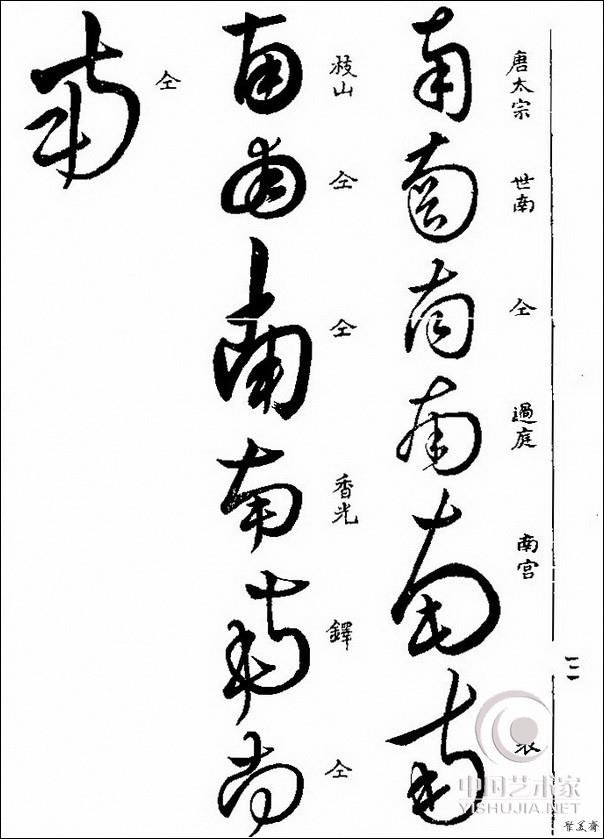 唐太宗 世南 仝 過庭 南宫
南 南 南 南 南 南
枝山 仝 仝 香光 鐸 仝
南 南 南 南 南 南
仝
南
中国艺术家
YISHUJIA.NET